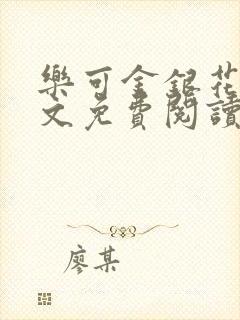 樂可金銀花
文免費閱讀
廖某